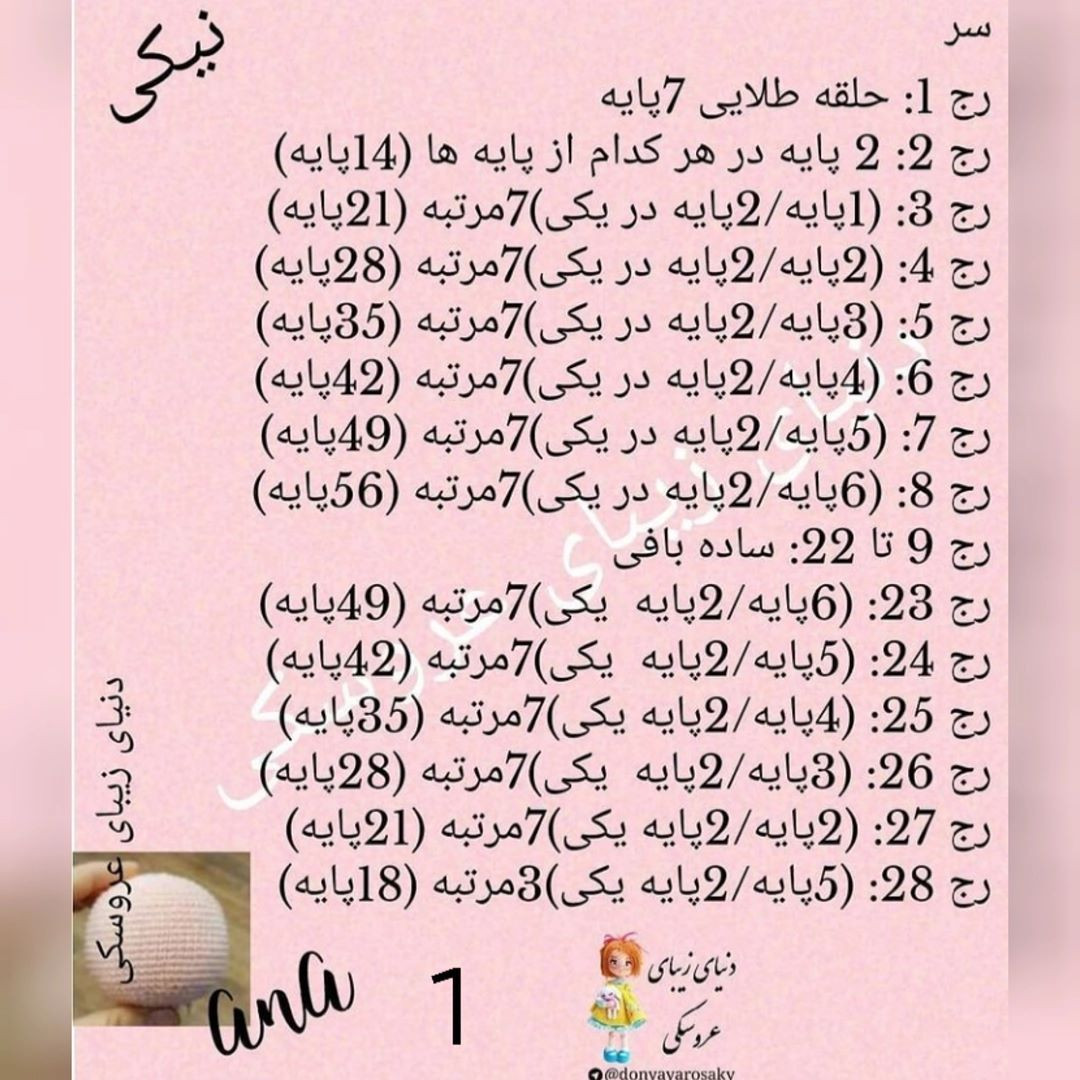 نیکی
سر
رج 1: حلقه طلایی 7پایه
رج 2: 2 پایه در هر کدام از پایه ها (14پایه)
رج 3: (1پایه/2پایه در یکی)7مرتبه (21پایه)
رج 4: (2پایه/2پایه در یکی)7مرتبه (28پایه)
رج 5: (3پایه/2پایه در یکی)7مرتبه (35پایه)
رج 6: (4پایه/2پایه در یکی)7مرتبه (42پایه)
رج 7: (5پایه/2پایه در یکی)7مرتبه (49پایه)
رج 8: (6پایه/2پایه در یکی)7مرتبه (56پایه)
رج 9 تا 22: ساده بافی
رج 23: (6پایه/2پایه یکی)7مرتبه (49پایه)
رج 24: (5پایه/2پایه یکی)7مرتبه (42پایه)
رج 25: (4پایه/2پایه یکی)7مرتبه (35پایه)
رج 26: (3پایه/2پایه یکی)7مرتبه (28پایه)
رج 27: (2پایه/2پایه یکی)7مرتبه (21پایه)
رج 28: (5پایه/2پایه یکی)3مرتبه (18پایه)
دنیای زیبای عروسکی
دنیای زیبای عروسکی
ana
1
دنیای زیبای
عروسکی
@donyayarosaky